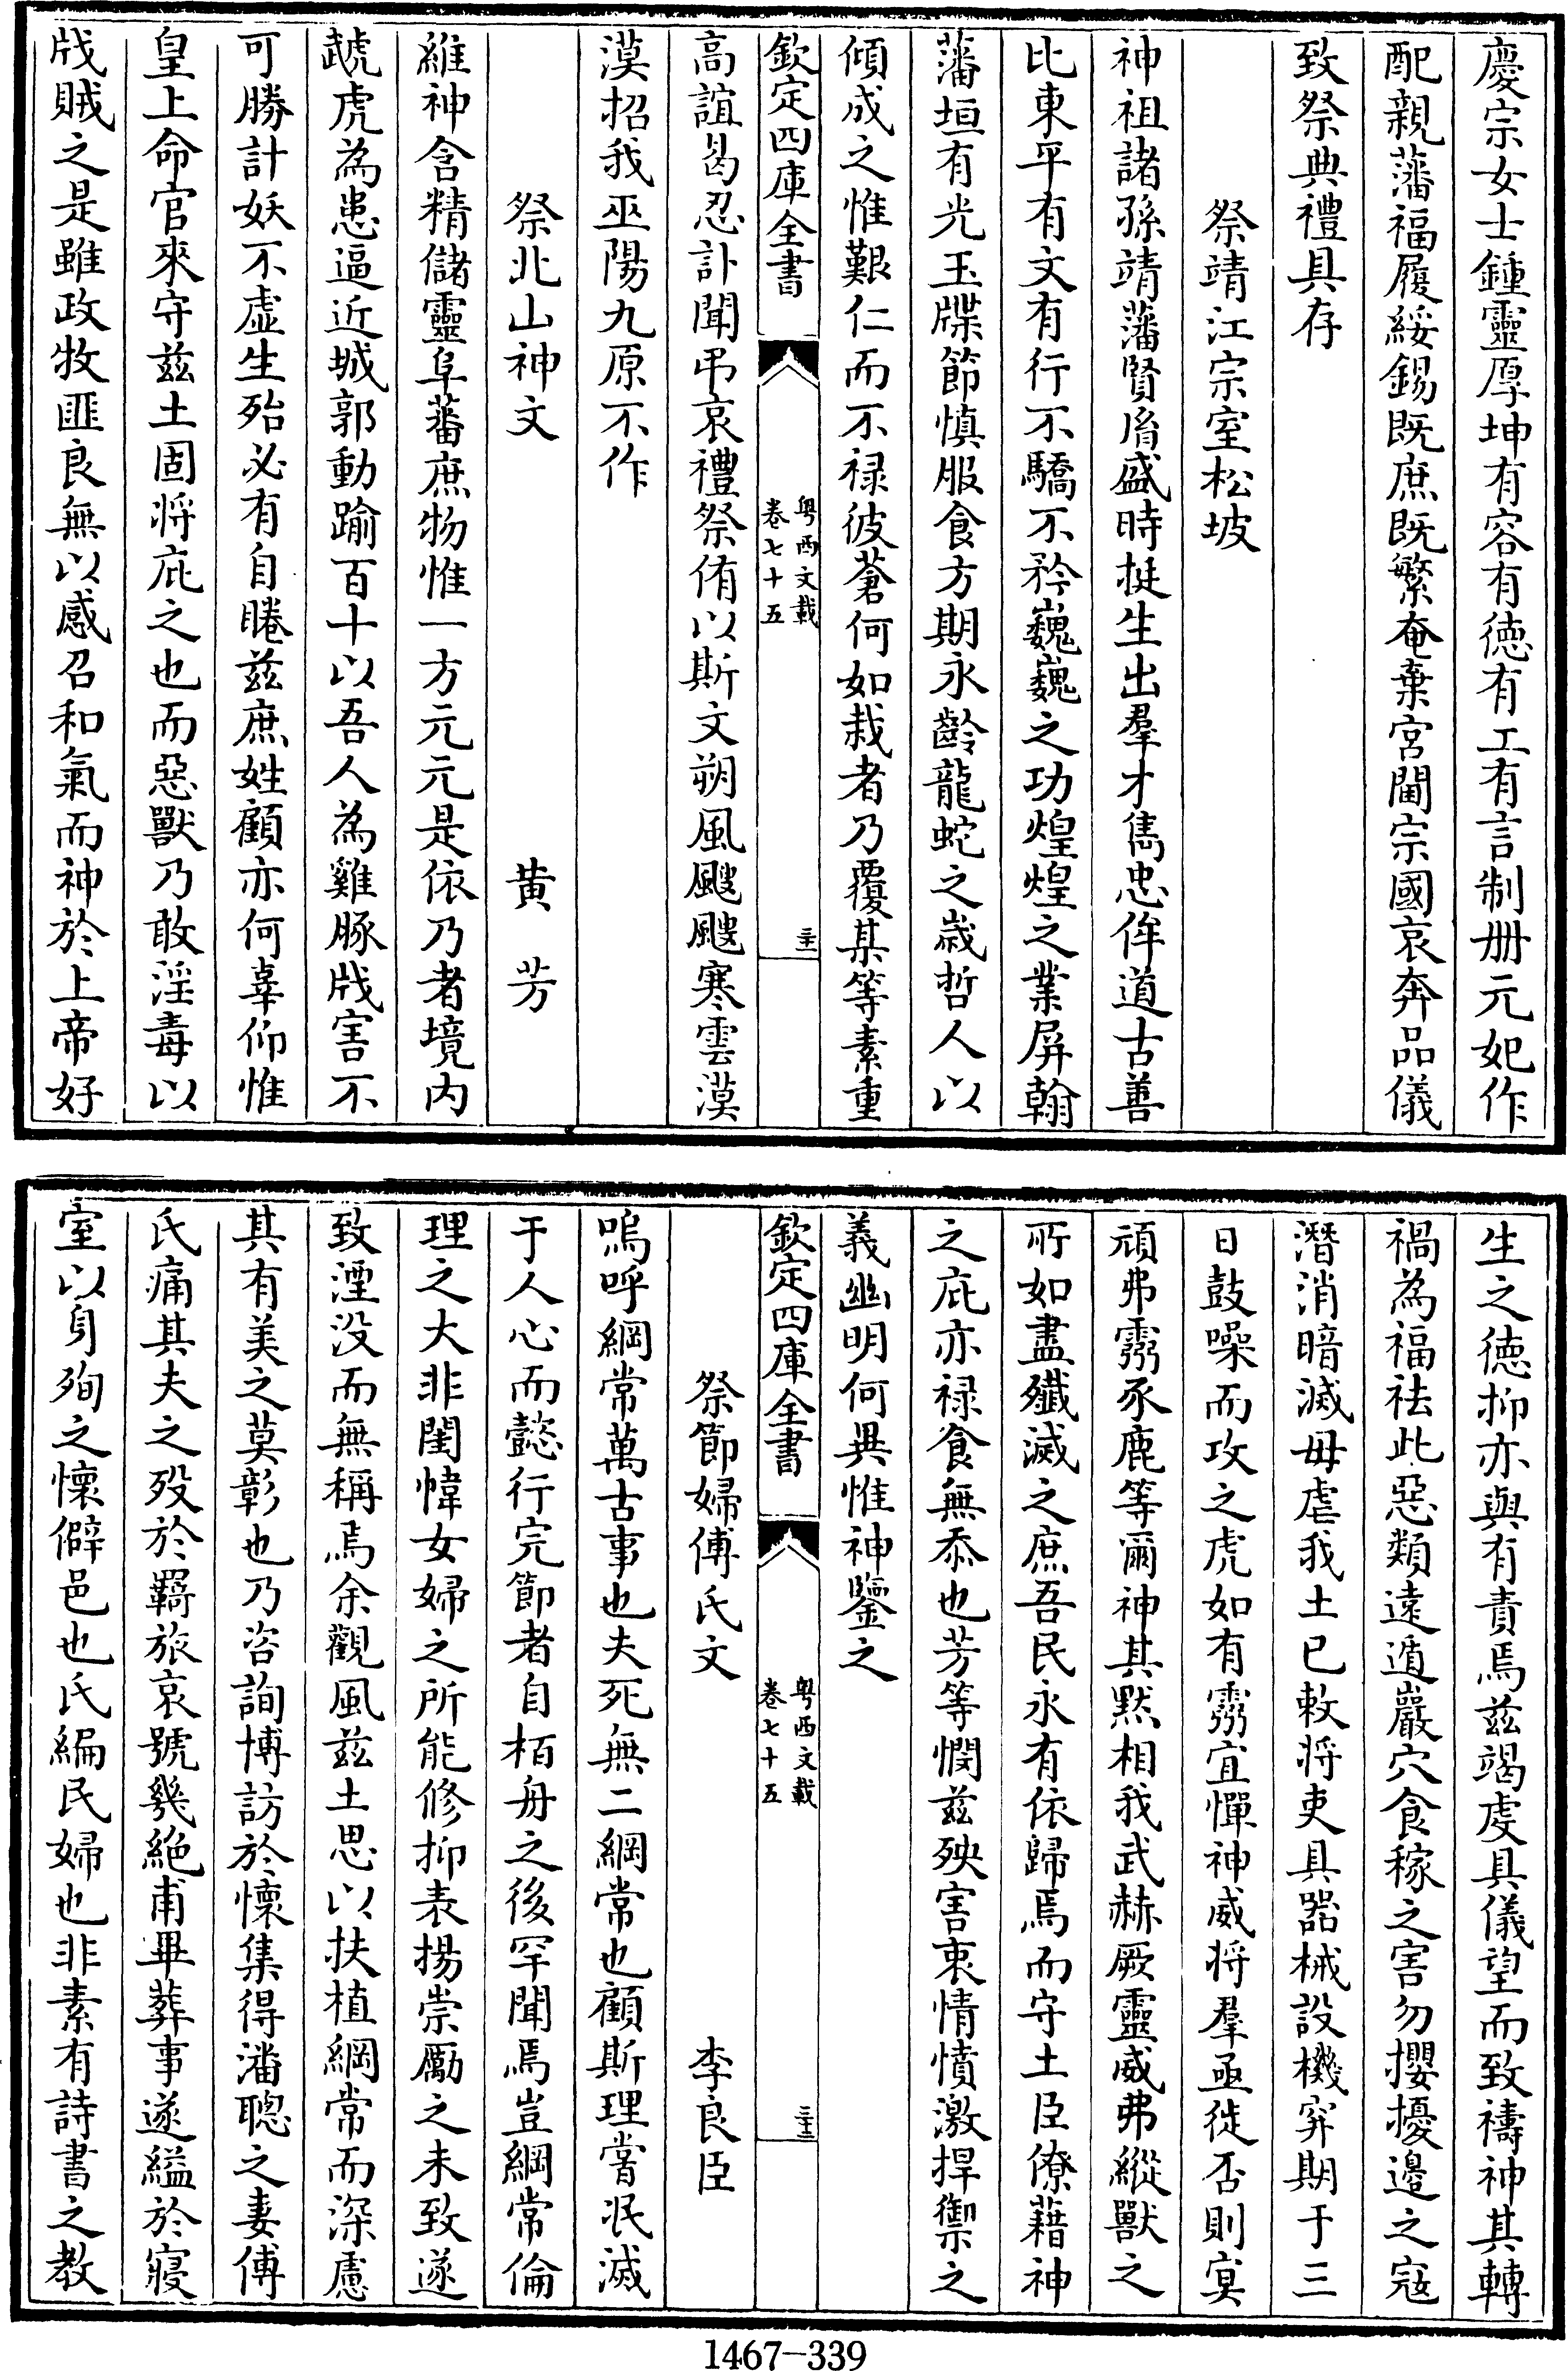 慶宗女士鍾靈厚坤有容有徳有工有言制册元妃作
配親藩福履綏錫既庶既繁奄棄宮閫宗國哀奔品儀
致祭典禮具存
祭靖江宗室松坡
神祖諸孫靖藩賢胤盛時挺生出羣才雋忠侔道古善
比東平有文有行不驕不矜巍巍之功煌煌之業屏翰
藩垣有光玉牒節慎服食方期永齡龍蛇之歳哲人以
傾成之惟艱仁而不禄彼蒼何如栽者乃覆某等素重
欽定四庫全書
粤西文載
卷七十五
三十
高誼曷忍訃聞弔哀禮祭侑以斯文朔風颼颼寒雲漠
漠招我巫陽九原不作
祭北山神文 黄芳
維神含精儲靈阜蕃庶物惟一方元元是依乃者境内
虣虎為患逼近城郭動踰百十以吾人為雞豚戕害不
可勝計妖不虚生殆必有自睠兹庶姓顧亦何辜仰惟
皇上命官來守兹土固将庇之也而惡獸乃敢淫毒以
戕賊之是雖政牧匪良無以感召和氣而神於上帝好
生之徳抑亦與有責焉兹竭虔具儀望而致禱神其轉
禍為福祛此惡類遠遁巖穴食稼之害勿攖擾邊之寇
潛消暗滅毋虐我土已敕将吏具器械設機穽期于三
日鼓噪而攻之虎如有靈宜憚神威将羣亟徙否則冥
頑弗靈豕鹿等爾神其黙相我武赫厥靈威弗縱獸之
所如盡殲滅之庶吾民永有依歸焉而守土臣僚藉神
之庇亦禄食無忝也芳等憫兹殃害衷情憤激捍禦之
義幽明何異惟神鑒之
欽定四庫全書
粤西文載
卷七十五
三十一
祭節婦傅氏文 李良臣
嗚呼綱常萬古事也夫死無二綱常也顧斯理嘗泯滅
于人心而懿行完節者自栢舟之後罕聞焉豈綱常倫
理之大非閨幃女婦之所能修抑表揚崇勵之未致遂
致湮没而無稱焉余觀風兹土思以扶植綱常而深慮
其有美之莫彰也乃咨詢博訪於懷集得潘聰之妻傅
氏痛其夫之殁於羇旅哀號幾絶甫畢葬事遂縊於寢
室以身殉之懷僻邑也氏編民婦也非素有詩書之教
1467-339